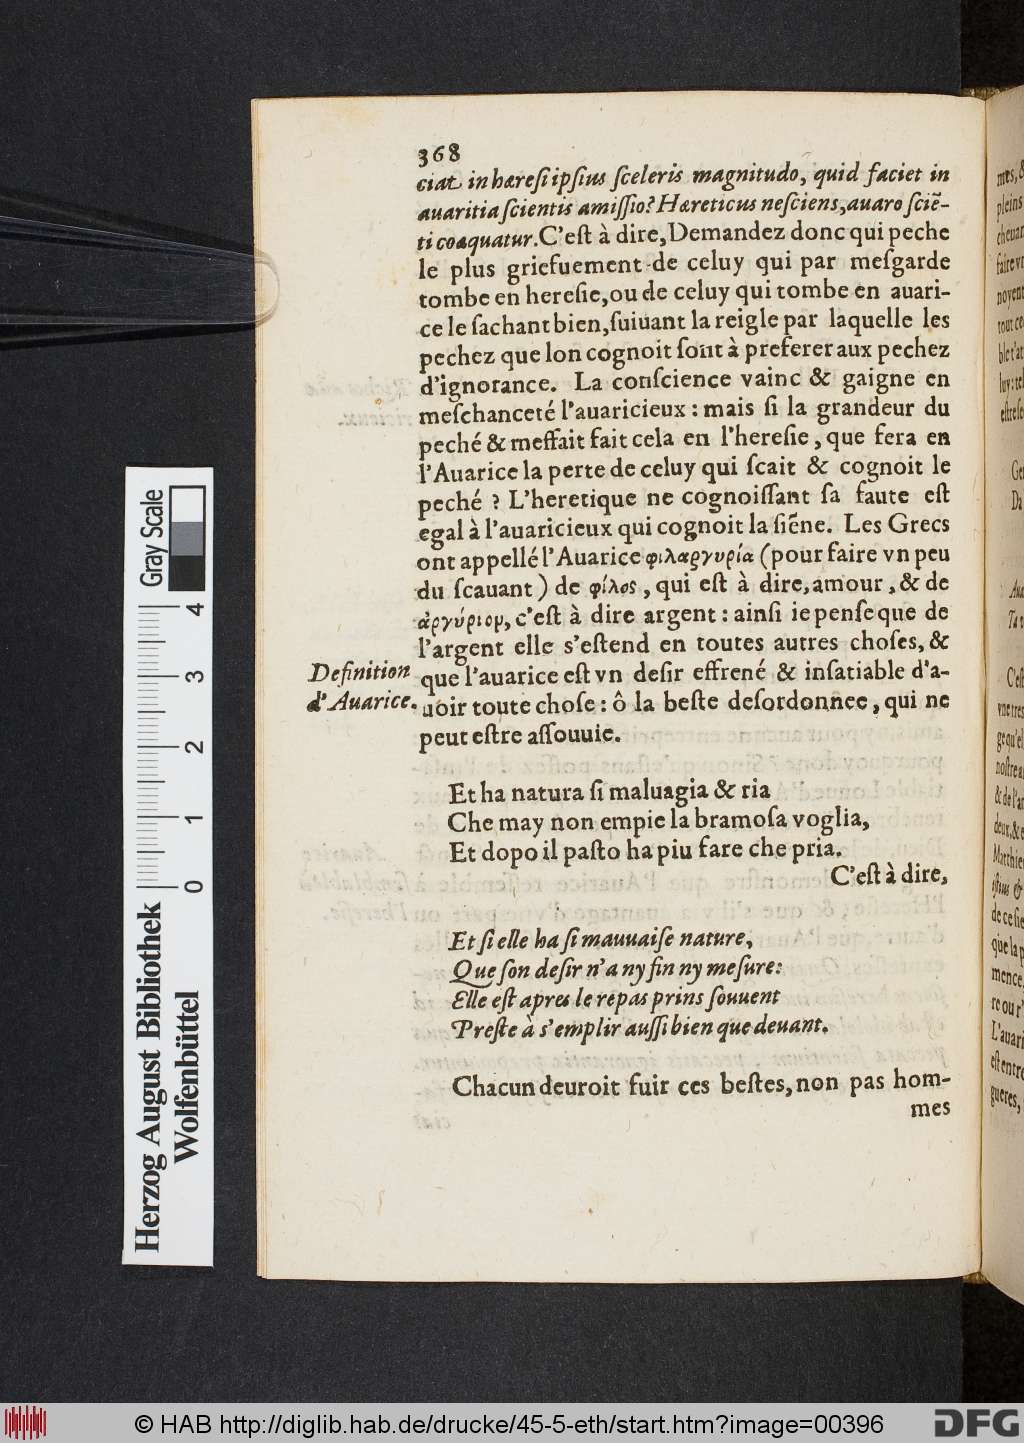 368
ciat in hæresi ipsius sceleris magnitudo, quid faciet in
auaritia scientis amissio? Hæreticus nesciens, auaro sciẽ-
ti coæquatur. C'eſt à dire, Demandez donc qui peche
le plus griefuement de celuy qui par meſgarde
tombe en hereſie, ou de celuy qui tombe en auari-
ce le ſachant bien, ſuiuant la reigle par laquelle les
pechez que lon cognoit ſont à preferer aux pechez
d'ignorance. La conſcience vainc & gaigne en
meſchanceté l'auaricieux : mais ſi la grandeur du
peché & meffait fait cela en l'hereſie, que fera en
l'Auarice la perte de celuy qui ſcait & cognoit le
peché ? L'heretique ne cognoiſſant ſa faute eſt
egal à l'auaricieux qui cognoit la ſiẽne. Les Grecs
ont appellé l'Auarice φιλαργυρία (pour faire vn peu
du ſcauant) de φίλος, qui eſt à dire, amour, & de
ἀργύριον, c'eſt à dire argent : ainſi ie penſe que de
l'argent elle s'eſtend en toutes autres choſes, &
Definition
d'Auarice.
que l'auarice eſt vn deſir effrené & inſatiable d'a-
uoir toute choſe : ô la beſte deſordonnee, qui ne
peut eſtre aſſouuie.
Et ha natura ſi maluagia & ria
Che may non empie la bramoſa voglia,
Et dopo il paſto ha piu fare che pria.
C'eſt à dire,
Et ſi elle ha ſi mauuaiſe nature,
Que ſon deſir n'a ny fin ny meſure:
Elle eſt apres le repas prins ſouuent
Preſte à s'emplir auſſi bien que deuant.
Chacun deuroit fuir ces beſtes, non pas hom-
mes
Gray Scale
0 1 2 3 4
Herzog August Bibliothek
Wolfenbüttel
© HAB http://diglib.hab.de/drucke/45-5-eth/start.htm?image=00396
DFG